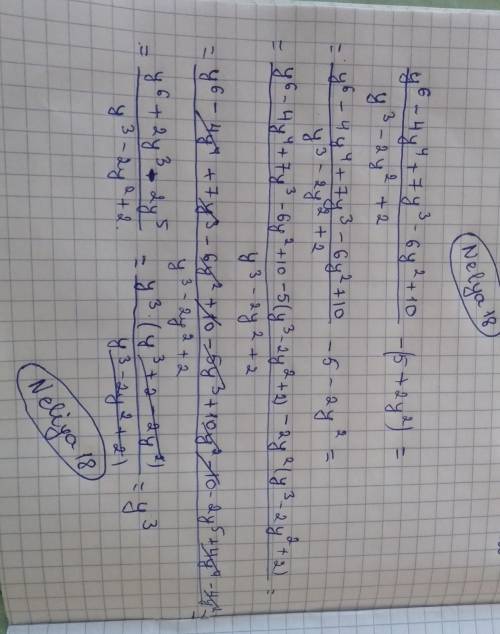 Neliya 18
(y⁶ - 4y⁴ + 7y³ - 6y² + 10)/(y³ - 2y² + 2) - (5 + 2y²) =
= (y⁶ - 4y⁴ + 7y³ - 6y² + 10)/(y³ - 2y² + 2) - 5 - 2y² =
= (y⁶ - 4y⁴ + 7y³ - 6y² + 10 - 5(y³ - 2y² + 2) - 2y²(y³ - 2y² + 2))/(y³ - 2y² + 2) =
= (y⁶ - 4y⁴ + 7y³ - 6y² + 10 - 5y³ + 10y² - 10 - 2y⁵ + 4y⁴ - 4y²)/(y³ - 2y² + 2) =
= (y⁶ + 2y³ - 2y⁵)/(y³ - 2y² + 2) = (y³ · (y³ + 2 - 2y²))/(y³ - 2y² + 2) = y³
Neliya 18